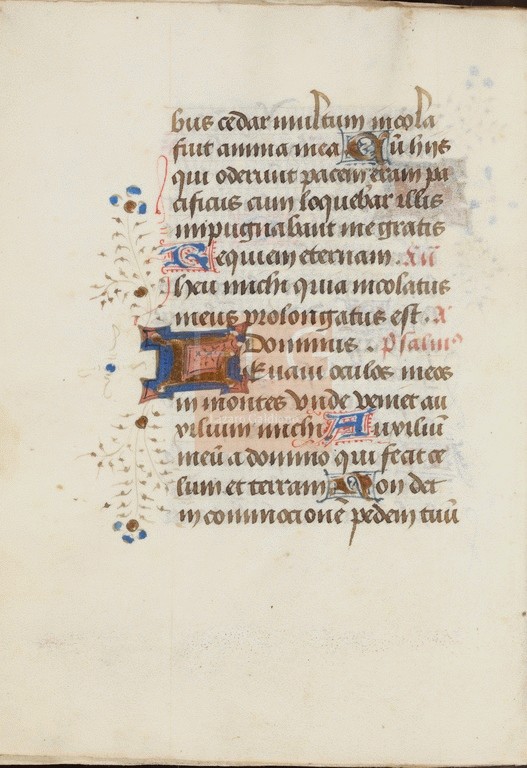 bus cedar multum incola
fuit anima mea Cū hiis
qui oderunt pacem eram pa
cificus cum loquebar illis
impugnabant me gratis
Requiem eternam. Añ
heu michi quia incolatus
meus prolongatus est. A
Dominus. Psalmus
Leuaui oculos meos
in montes vnde veniet au
xilium michi Auxiliū
meū a domino qui fecit ce
lum et terram Non det
in commocionē pedem tuū